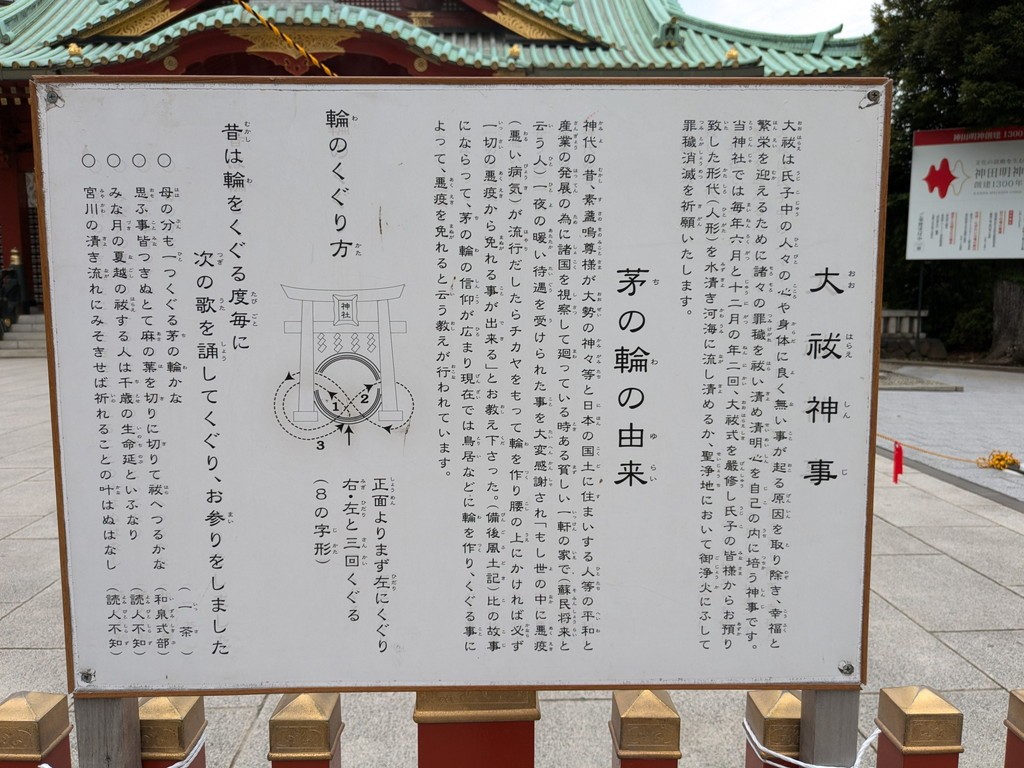 大祓神事
大祓は氏子中の人々の心や身体に良く無い事が起る原因を取り除き、幸福と
繁栄を迎えるために諸々の罪穢を祓い清め清明心を自己の内に培う神事です。
当神社では毎年六月と十二月の年二回、大祓式を厳修し氏子の皆様からお預り
致した形代(人形)を水清き河海に流し清めるか、聖浄地において御浄火にふして
罪穢消滅を祈願いたします。
茅の輪の由来
神代の昔、素盞鳴尊様が大勢の神々等と日本の国土に住まいする人等の平和と
産業の発展の為に諸国を視察して廻っている時ある貧しい一軒の家で(蘇民将来と
云う人)一夜の暖い待遇を受けられた事を大変感謝され「もし世の中に悪疫
(悪い病気)が流行だしたらチカヤをもって輪を作り腰の上にかければ必ず
一切の悪疫から免れる事が出来る」とお教え下さった。(備後風土記)比の故事
にならって、茅の輪の信仰が広まり現在では鳥居などに輪を作り、くぐる事に
よって、悪疫を免れると云う教えが行われています。
輪のくぐり方
神社
1
2
3
正面よりまず左にくぐり
右・左と三回くぐる
(8の字形)
昔は輪をくぐる度毎に
次の歌を誦してくぐり、お参りをしました
○ 母の分も一つくぐる茅の輪かな (一茶)
○ 思ふ事皆つきぬとて麻の葉を切りに切りて祓へつるかな (和泉式部)
○ みな月の夏越の祓する人は千歳の生命延といふなり (読人不知)
○ 宮川の清き流れにみそぎせば祈れることの叶はぬはなし (読人不知)
神田明神創建1300
神田明神
創建1300年